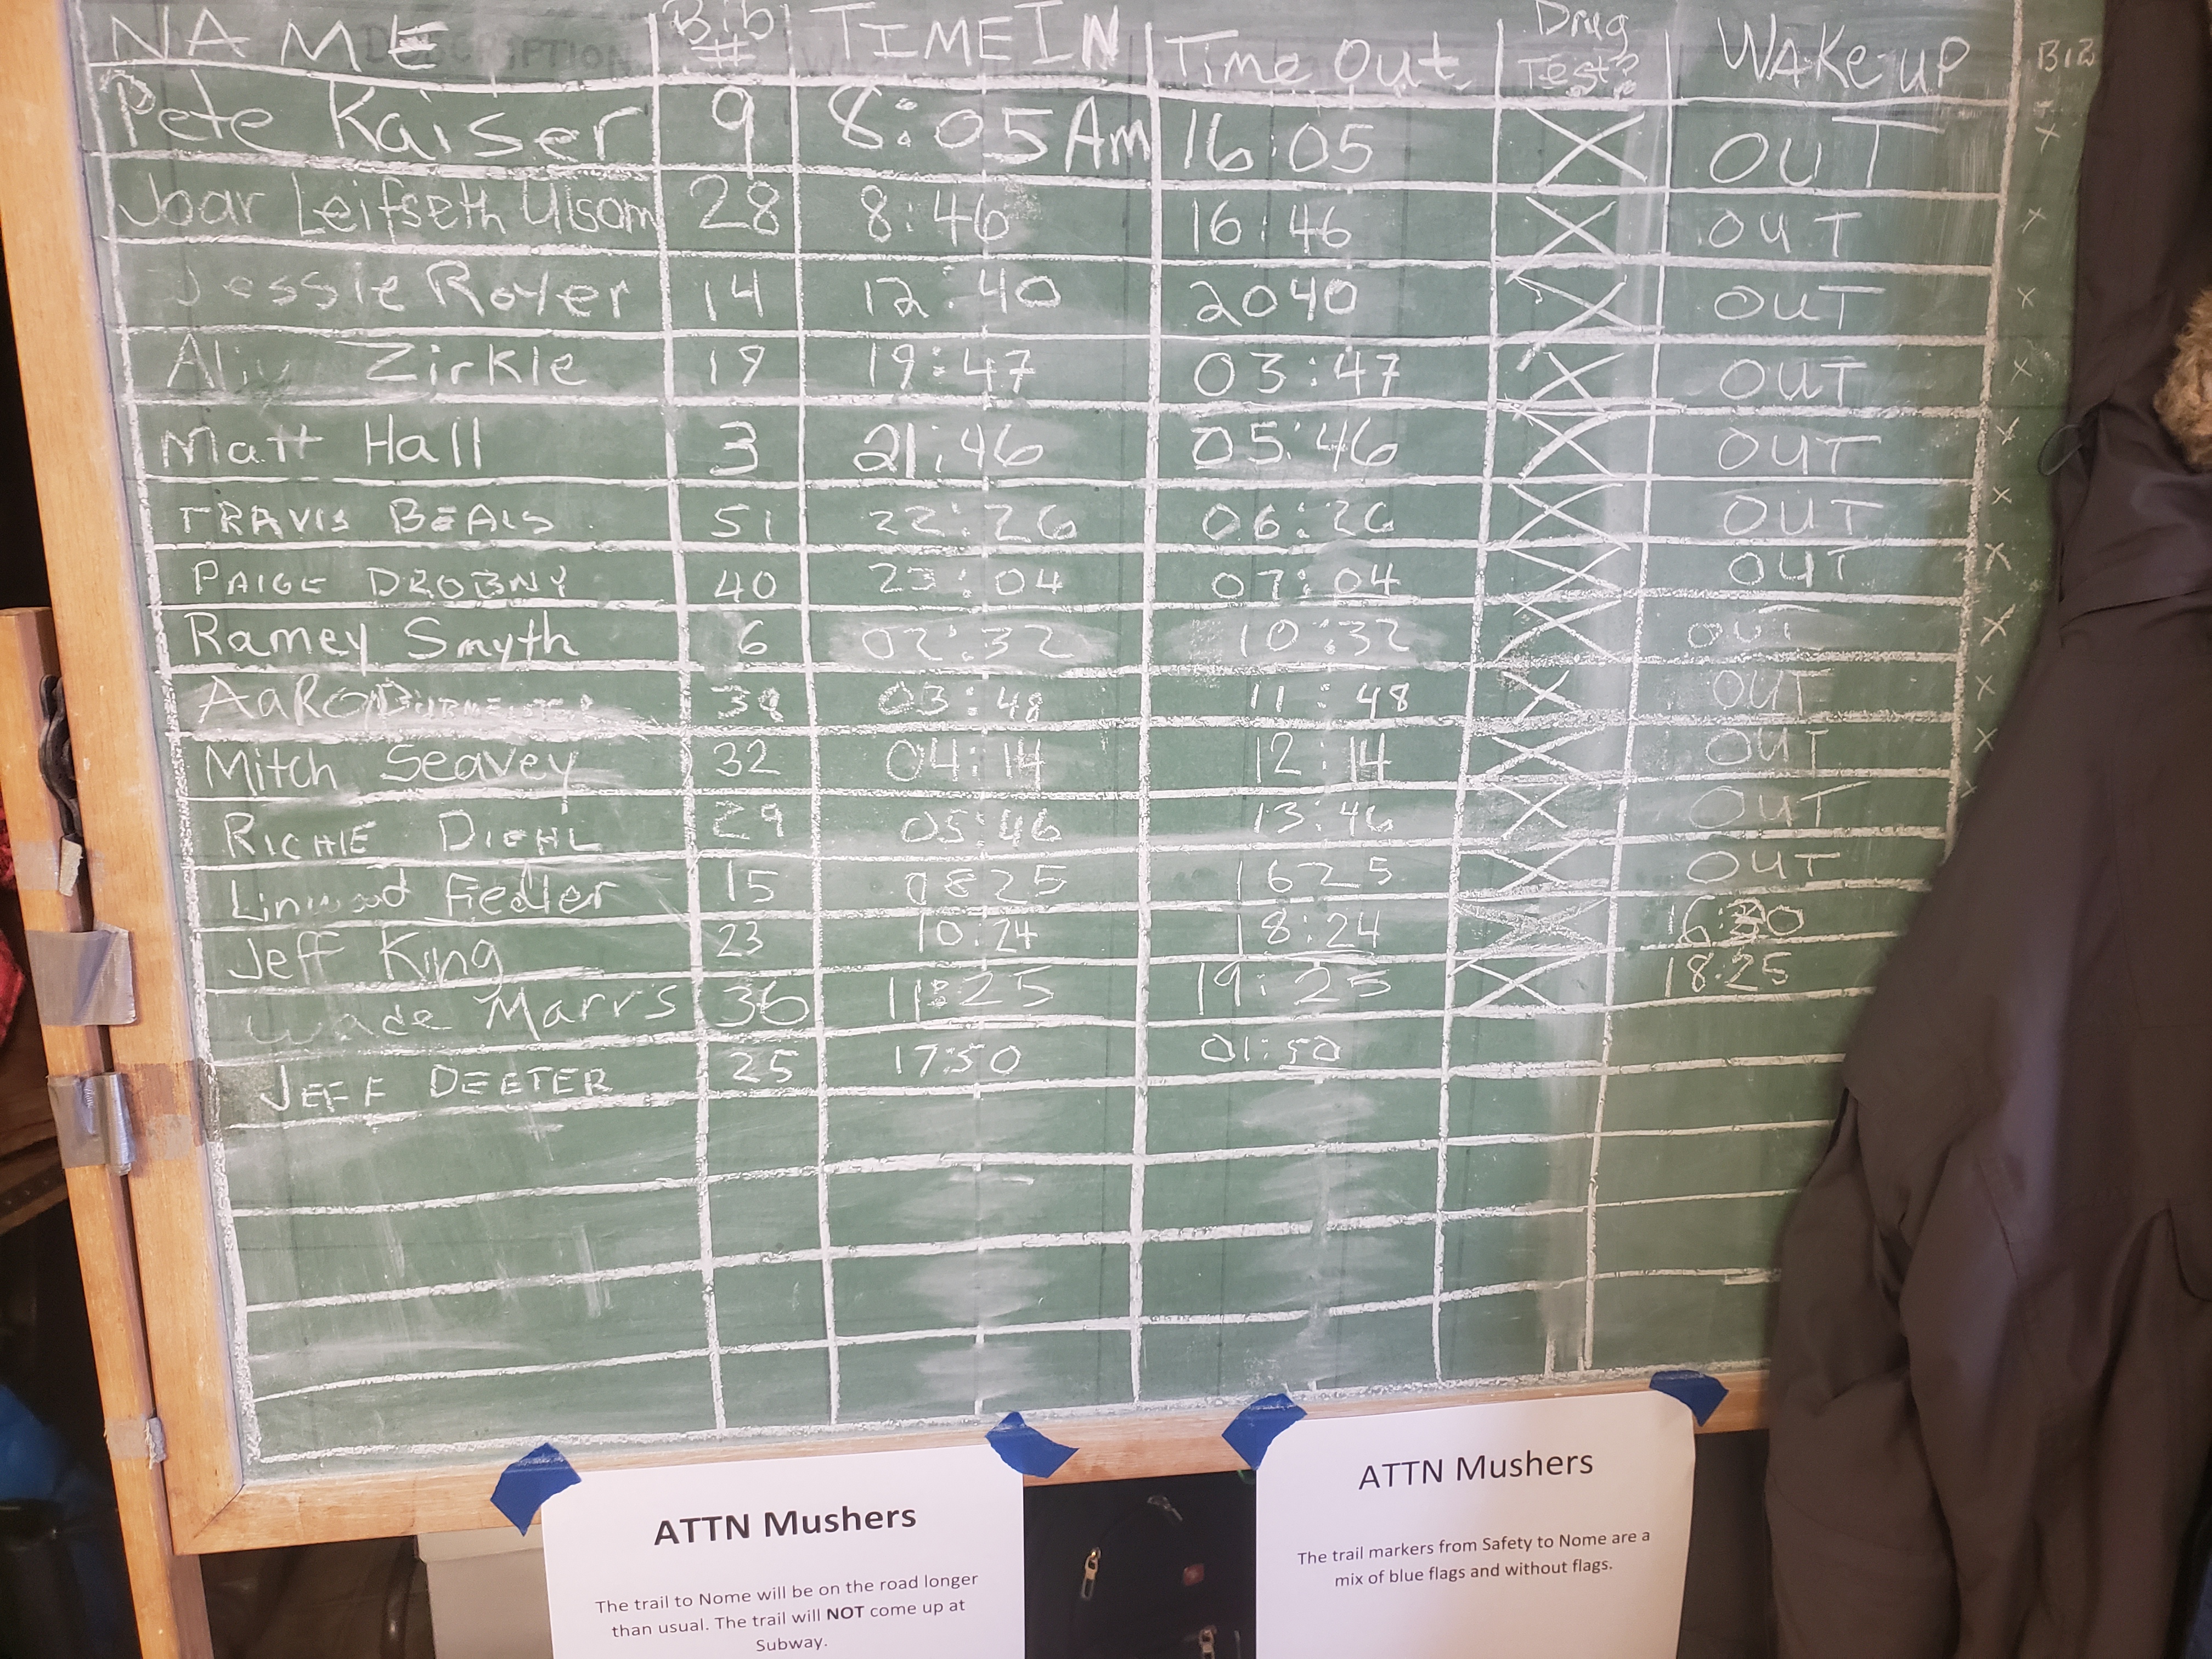 NAME Bib # TIME IN Time Out Drug Test? WAKE-UP BIB
Pete Kaiser 9 8:05 Am 16:05 X OUT X
Joar Leifseth Ulsom 28 8:46 16:46 X OUT X
Jessie Royer 14 12:40 2040 X OUT X
Aliy Zirkle 19 19:47 03:47 X OUT X
Matt Hall 3 21:46 05:46 X OUT X
TRAVIS BEALS 51 22:26 06:26 X OUT X
PAIGE DROBNY 40 23:04 07:04 X OUT X
Ramey Smyth 6 02:32 10:32 X OUT X
AaRon BURMEISTER 38 03:48 11:48 X OUT X
Mitch Seavey 32 04:14 12:14 X OUT X
RICHIE DIEHL 29 05:46 13:46 X OUT X
Linwood Fiedler 15 0825 1625 X OUT
Jeff King 23 10:24 18:24 X 16:30
Wade Marrs 36 11:25 19:25 X 18:25
JEFF DEETER 25 17:50 01:50
ATTN Mushers
The trail to Nome will be on the road longer
than usual. The trail will NOT come up at
Subway.
ATTN Mushers
The trail markers from Safety to Nome are a
mix of blue flags and without flags.